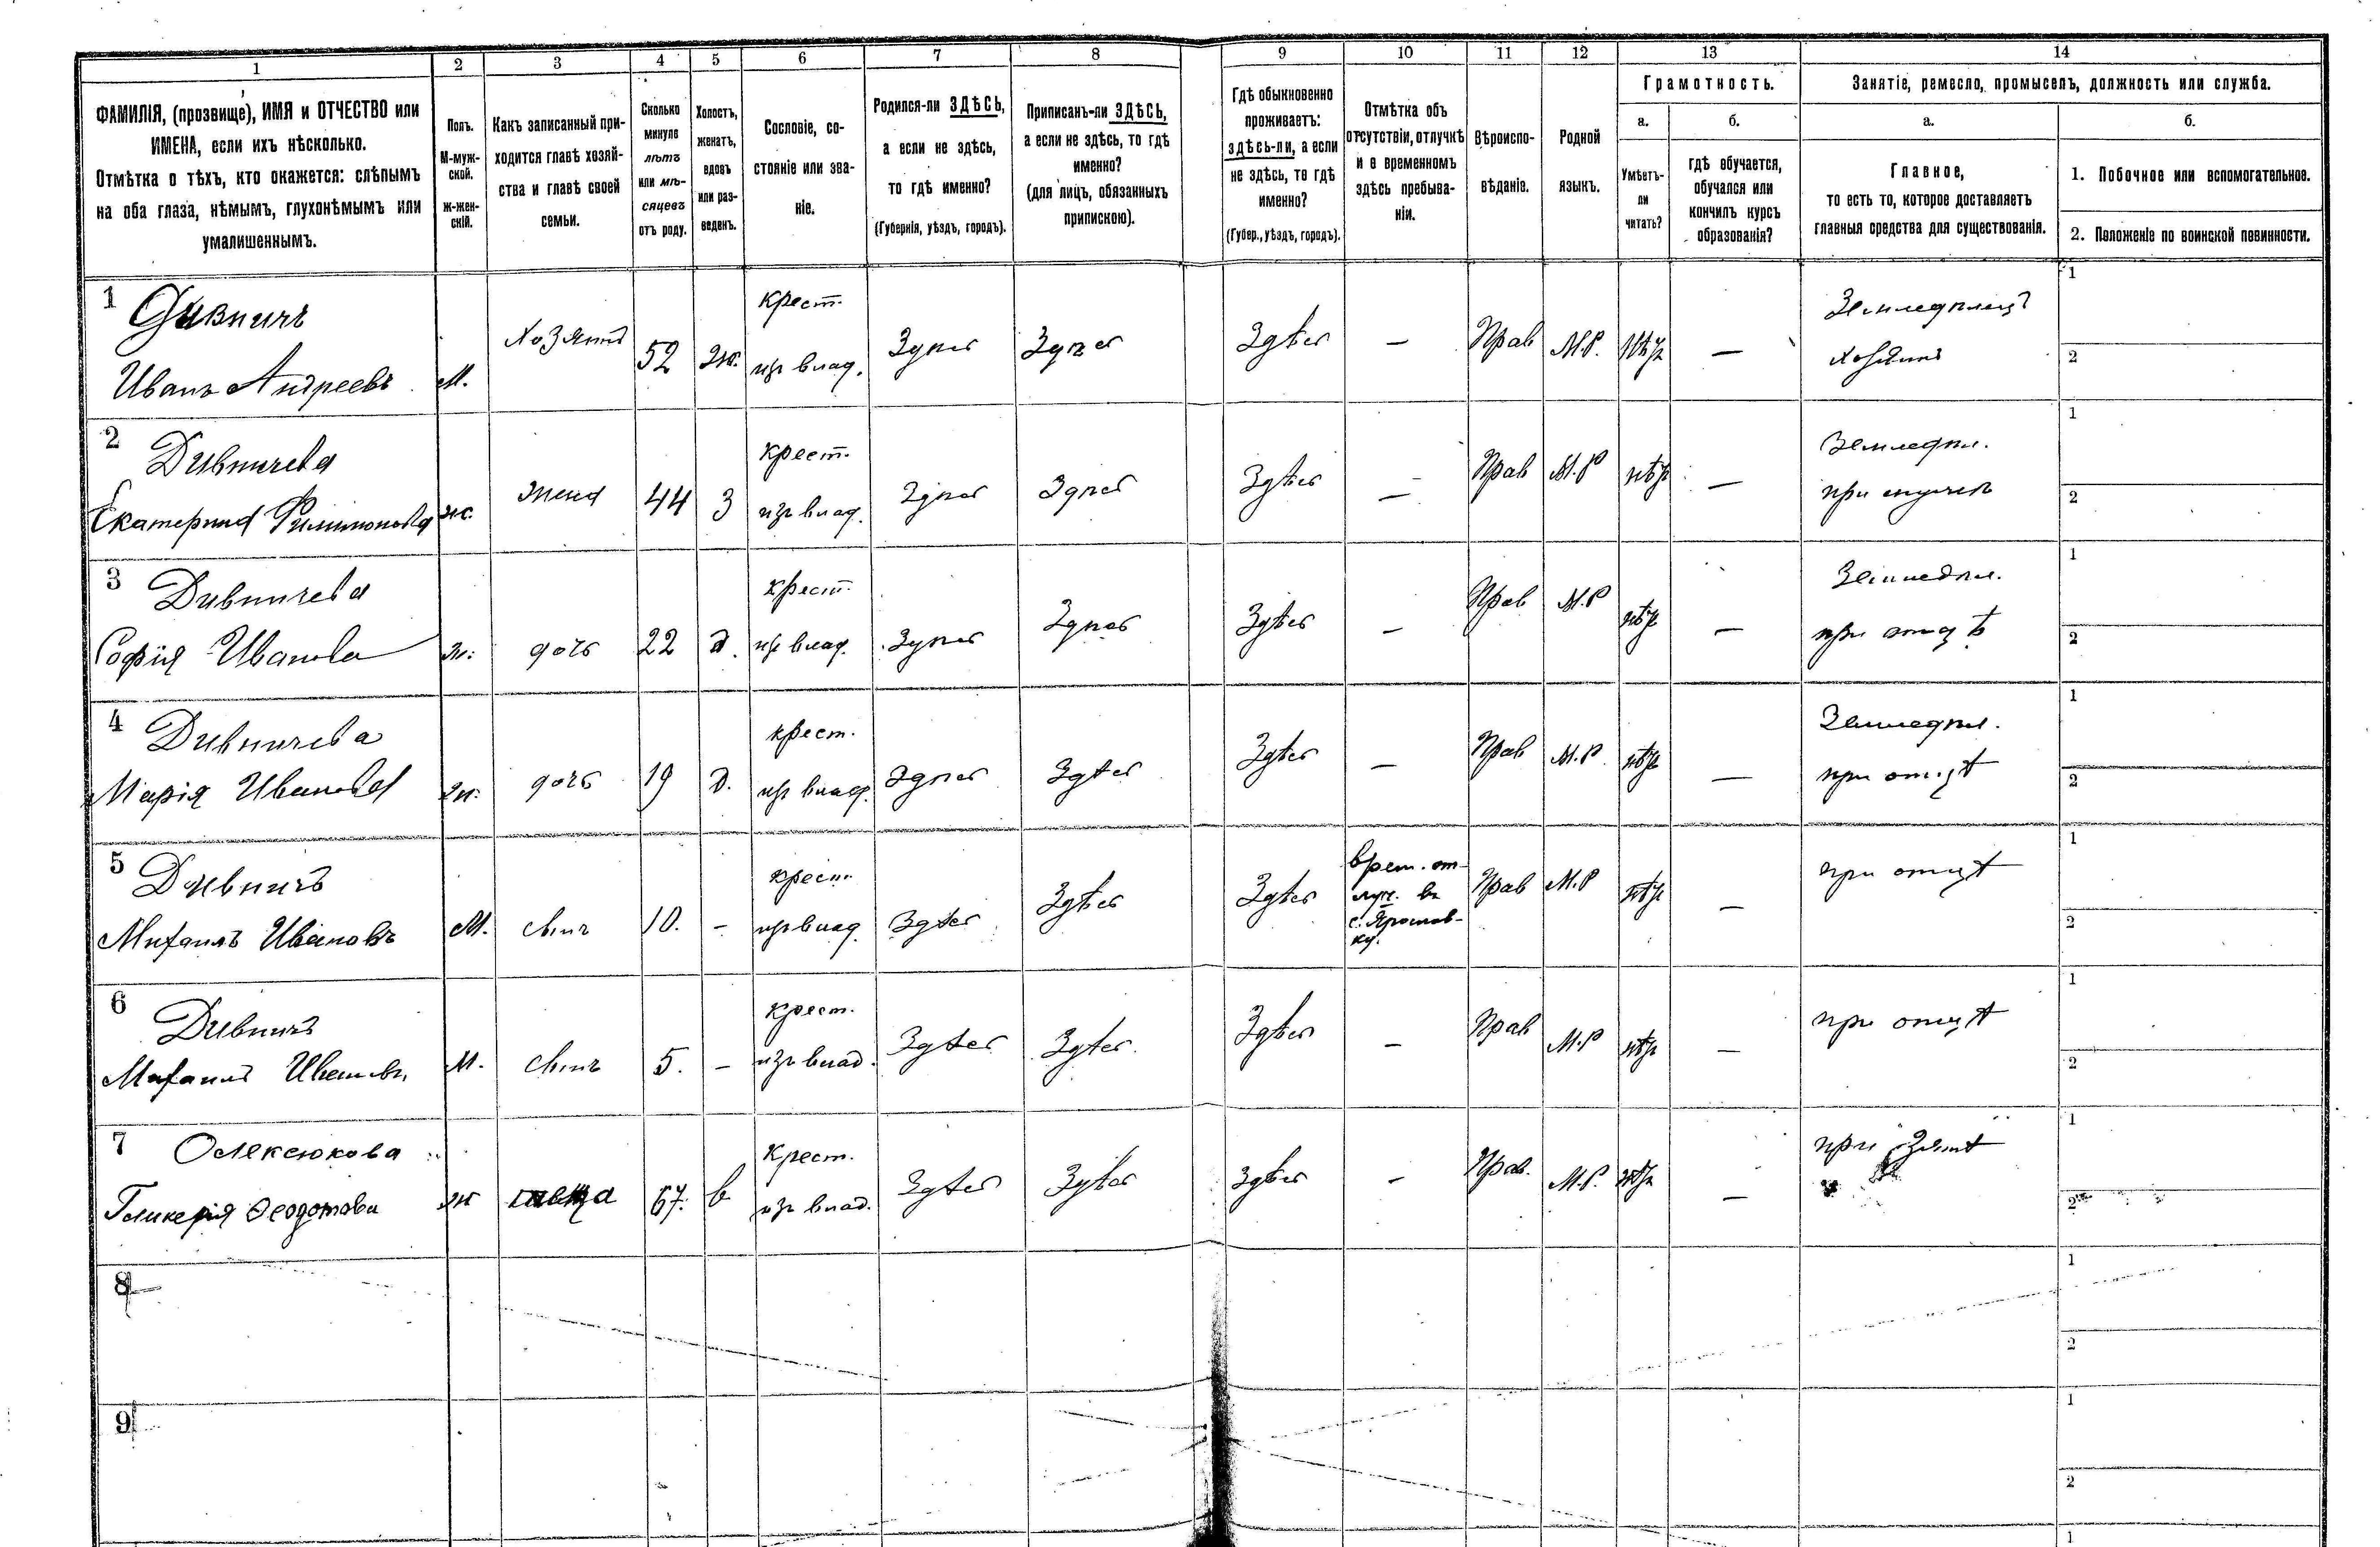 1 2 3 4 5 6 7 8 9 10 11 12 13 14
ФАМИЛІЯ, (прозвище), ИМЯ и ОТЧЕСТВО или
ИМЕНА, если ихъ нѣсколько.
Отмѣтка о тѣхъ, кто окажется: слѣпымъ
на оба глаза, нѣмымъ, глухонѣмымъ или
умалишеннымъ.
Полъ.
М-муж-
ской.
Ж-жен-
скій.
Какъ записанный при-
ходится главѣ хозяй-
ства и главѣ своей
семьи.
Сколько
минуло
лѣтъ
или мѣ-
сяцевъ
отъ роду.
Холостъ,
женатъ,
вдовъ
или раз-
веденъ.
Сословіе, со-
стояніе или зва-
ніе.
Родился-ли ЗДѢСЬ,
а если не здѣсь,
то гдѣ именно?
(Губернія, уѣздъ, городъ).
Приписанъ-ли ЗДѢСЬ,
а если не здѣсь, то гдѣ
именно?
(для лицъ, обязанныхъ
припискою).
Гдѣ обыкновенно
проживаетъ:
здѣсь-ли, а если
не здѣсь, то гдѣ
именно?
(Губер., уѣздъ, городъ).
Отмѣтка объ
отсутствіи, отлучкѣ
и о временномъ
здѣсь пребыва-
ніи.
Вѣроиспо-
вѣданіе.
Родной
языкъ.
Грамотность.
а.
Умѣетъ-
ли
читать?
б.
гдѣ обучается,
обучался или
кончилъ курсъ
образованія?
Занятіе, ремесло, промыселъ, должность или служба.
а.
Главное,
то есть то, которое доставляетъ
главныя средства для существованія.
б.
1. Побочное или вспомогательное.
2. Положеніе по воинской повинности.
1 Дивничъ
Иванъ Андреевъ
М.
Хозяинъ
52
Ж.
крест.
изъ влад.
Здѣсь
Здѣсь
Здѣсь
—
Прав
М.Р.
нѣтъ
—
Земледѣлецъ
хозяинъ
1
2
2 Дивничева
Екатерина Филимонова
ж.
жена
44
З
крест.
изъ влад.
Здѣсь
Здѣсь
Здѣсь
—
Прав
М.Р
нѣтъ
—
Земледѣл.
при мужѣ
1
2
3 Дивничева
Софія Иванова
ж.
дочь
22
д.
крест.
изъ влад.
Здѣсь
Здѣсь
Здѣсь
—
Прав
М.Р
нѣтъ
—
Земледѣл.
при отцѣ
1
2
4 Дивничева
Марія Иванова
ж.
дочь
19
д.
крест.
изъ влад.
Здѣсь
Здѣсь
Здѣсь
—
Прав
М.Р.
нѣтъ
—
Земледѣл.
при отцѣ
1
2
5 Дивничъ
Михаилъ Ивановъ
М.
сынъ
10.
-
крест.
изъ влад.
Здѣсь
Здѣсь
Здѣсь
врем. от-
луч. въ
с. Ярослав-
ку.
Прав
М.Р
нѣтъ
—
при отцѣ
1
2
6 Дивничъ
Михаилъ Ивановъ
М.
сынъ
5.
-
крест.
изъ влад.
Здѣсь
Здѣсь
Здѣсь
—
Прав
М.Р
нѣтъ
—
при отцѣ
1
2
7 Олексюкова
Гликерія Ѳеодотова
ж
67.
в
крест.
изъ влад.
Здѣсь
Здѣсь
Здѣсь
—
Прав.
М.Р.
нѣтъ
—
при зятѣ
1
2
8
1
2
9
1
2
1